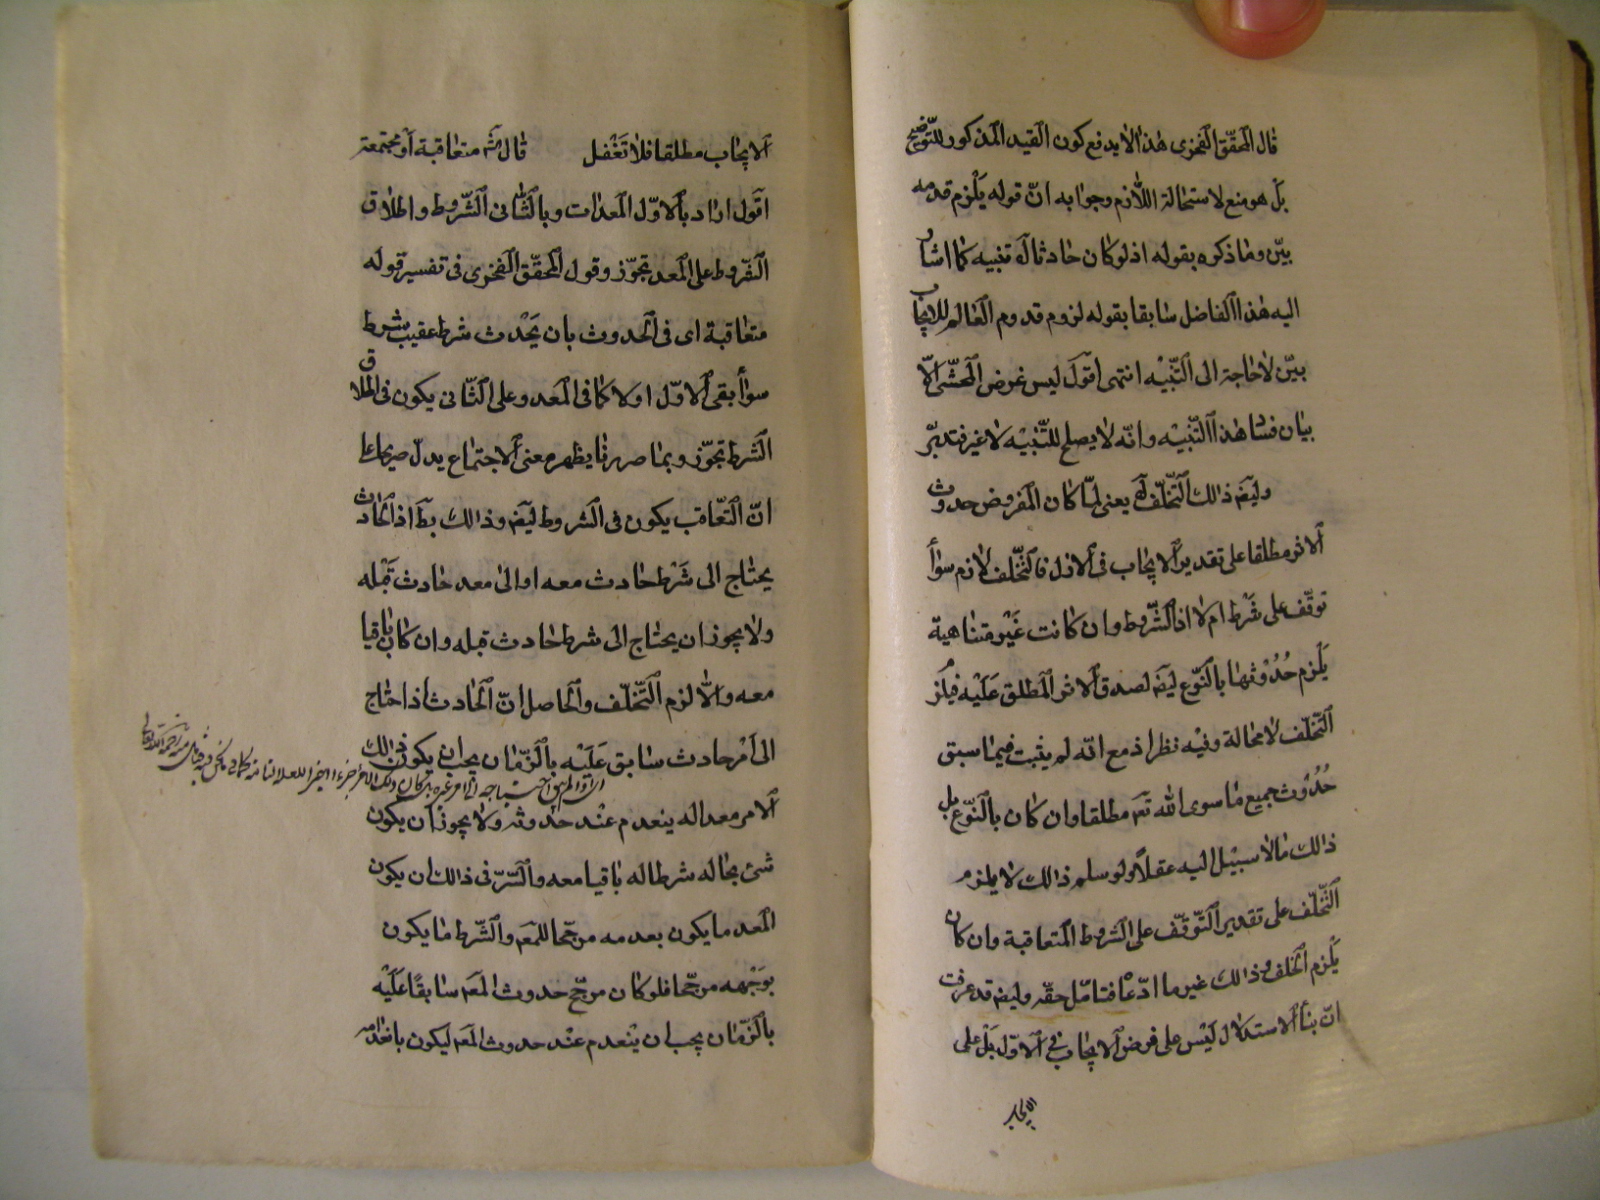 قال المحقق الفخرى هذا لا يدفع كون القيد المذكور للتوضيح
بل هو منع لاستحالة اللازم وجوابه انّ قوله يلزم قدمه
بيّن وما ذكره بقوله اذ لو كان حادثا له تنبيه كما اشار
اليه هذا الفاضل سابقا بقوله لزوم قدوم العالم للايجاب
بيّن لا حاجة الى التنبيه انتهى اقول ليس غرض المحشّى الّا
بيان فساد هذا التنبيه وانّه لا يصلح للتنبيه لا غير فتدبّر
وليضا ذالك التخلّف له يعنى لمّا كان المفروض حدوث
الاثر مطلقا على تقدير الايجاب فى الازل فالتخلّف لازم سوأ
توقّف على شرط ام لا اذ الشروط وان كانت غير متناهية
يلزم حدوثها بالنوع ليضا لصدق الاثر المطلق عليه فيلزم
التخلّف لا محالة وفيه نظر اذ مع انّه لم يثبت فيما سبق
حدوث جميع ما سوى الله تعم مطلقا وان كان بالنوع بل
ذالك مالا سبيل اليه عقلا ولو سلم ذالك لا يلزم
التخلّف على تقدير التوقّف على الشروط المتعاقبة وان كان
يلزم الخلف وذالك غير ما ادّعا فتامّل حقّه وليضا قد عرفت
انّ بنأ الاستدلال ليس على فرض الايجاب فى الاوّل بل على
الايجاب
الايجاب مطلقا فلا تغفل قال الش متعاقبة أو مجتمعة
اقول اراد بالاوّل المعدات وبالثانى الشروط واطلاق
الشروط على المعد تجوّز وقول المحقّق الفخرى فى تفسير قوله
متعاقبة اى فى الحدوث بان يحدث شرط عقيب شرط
سوأ بقى الاوّل اولا كما فى المعد وعلى الثّانى يكون فى اطلاق
الشرط تجوّز وبما صررنا يظهر معنى الاجتماع يدل صريحا على
انّ التعاقب يكون فى الشروط ليضا وذالك بط اذ الحادث
يحتاج الى شرط حادث معه او الى معد حادث قبله
ولا يجوز ان يحتاج الى شرط حادث قبله وان كان باقيا
معه والّا لزم التخلّف والحاصل انّ الحادث اذا احتاج
الى امر حادث سابق عليه بالزمان يجب ان يكون ذالك
الامر معدا له ينعدم عند حدوثه ولا يجوز ان يكون
شئ بحاله شرطا له باقيا معه والسّر فى ذالك ان يكون
المعد ما يكون بعدمه مرجّحا للمعم والشرط ما يكون
بوجهه مرجّحا فلو كان مرجّح حدوث المعم سابقا عليه
بالزمان يجب ان ينعدم عند حدوث المعم ليكون بانعدامه